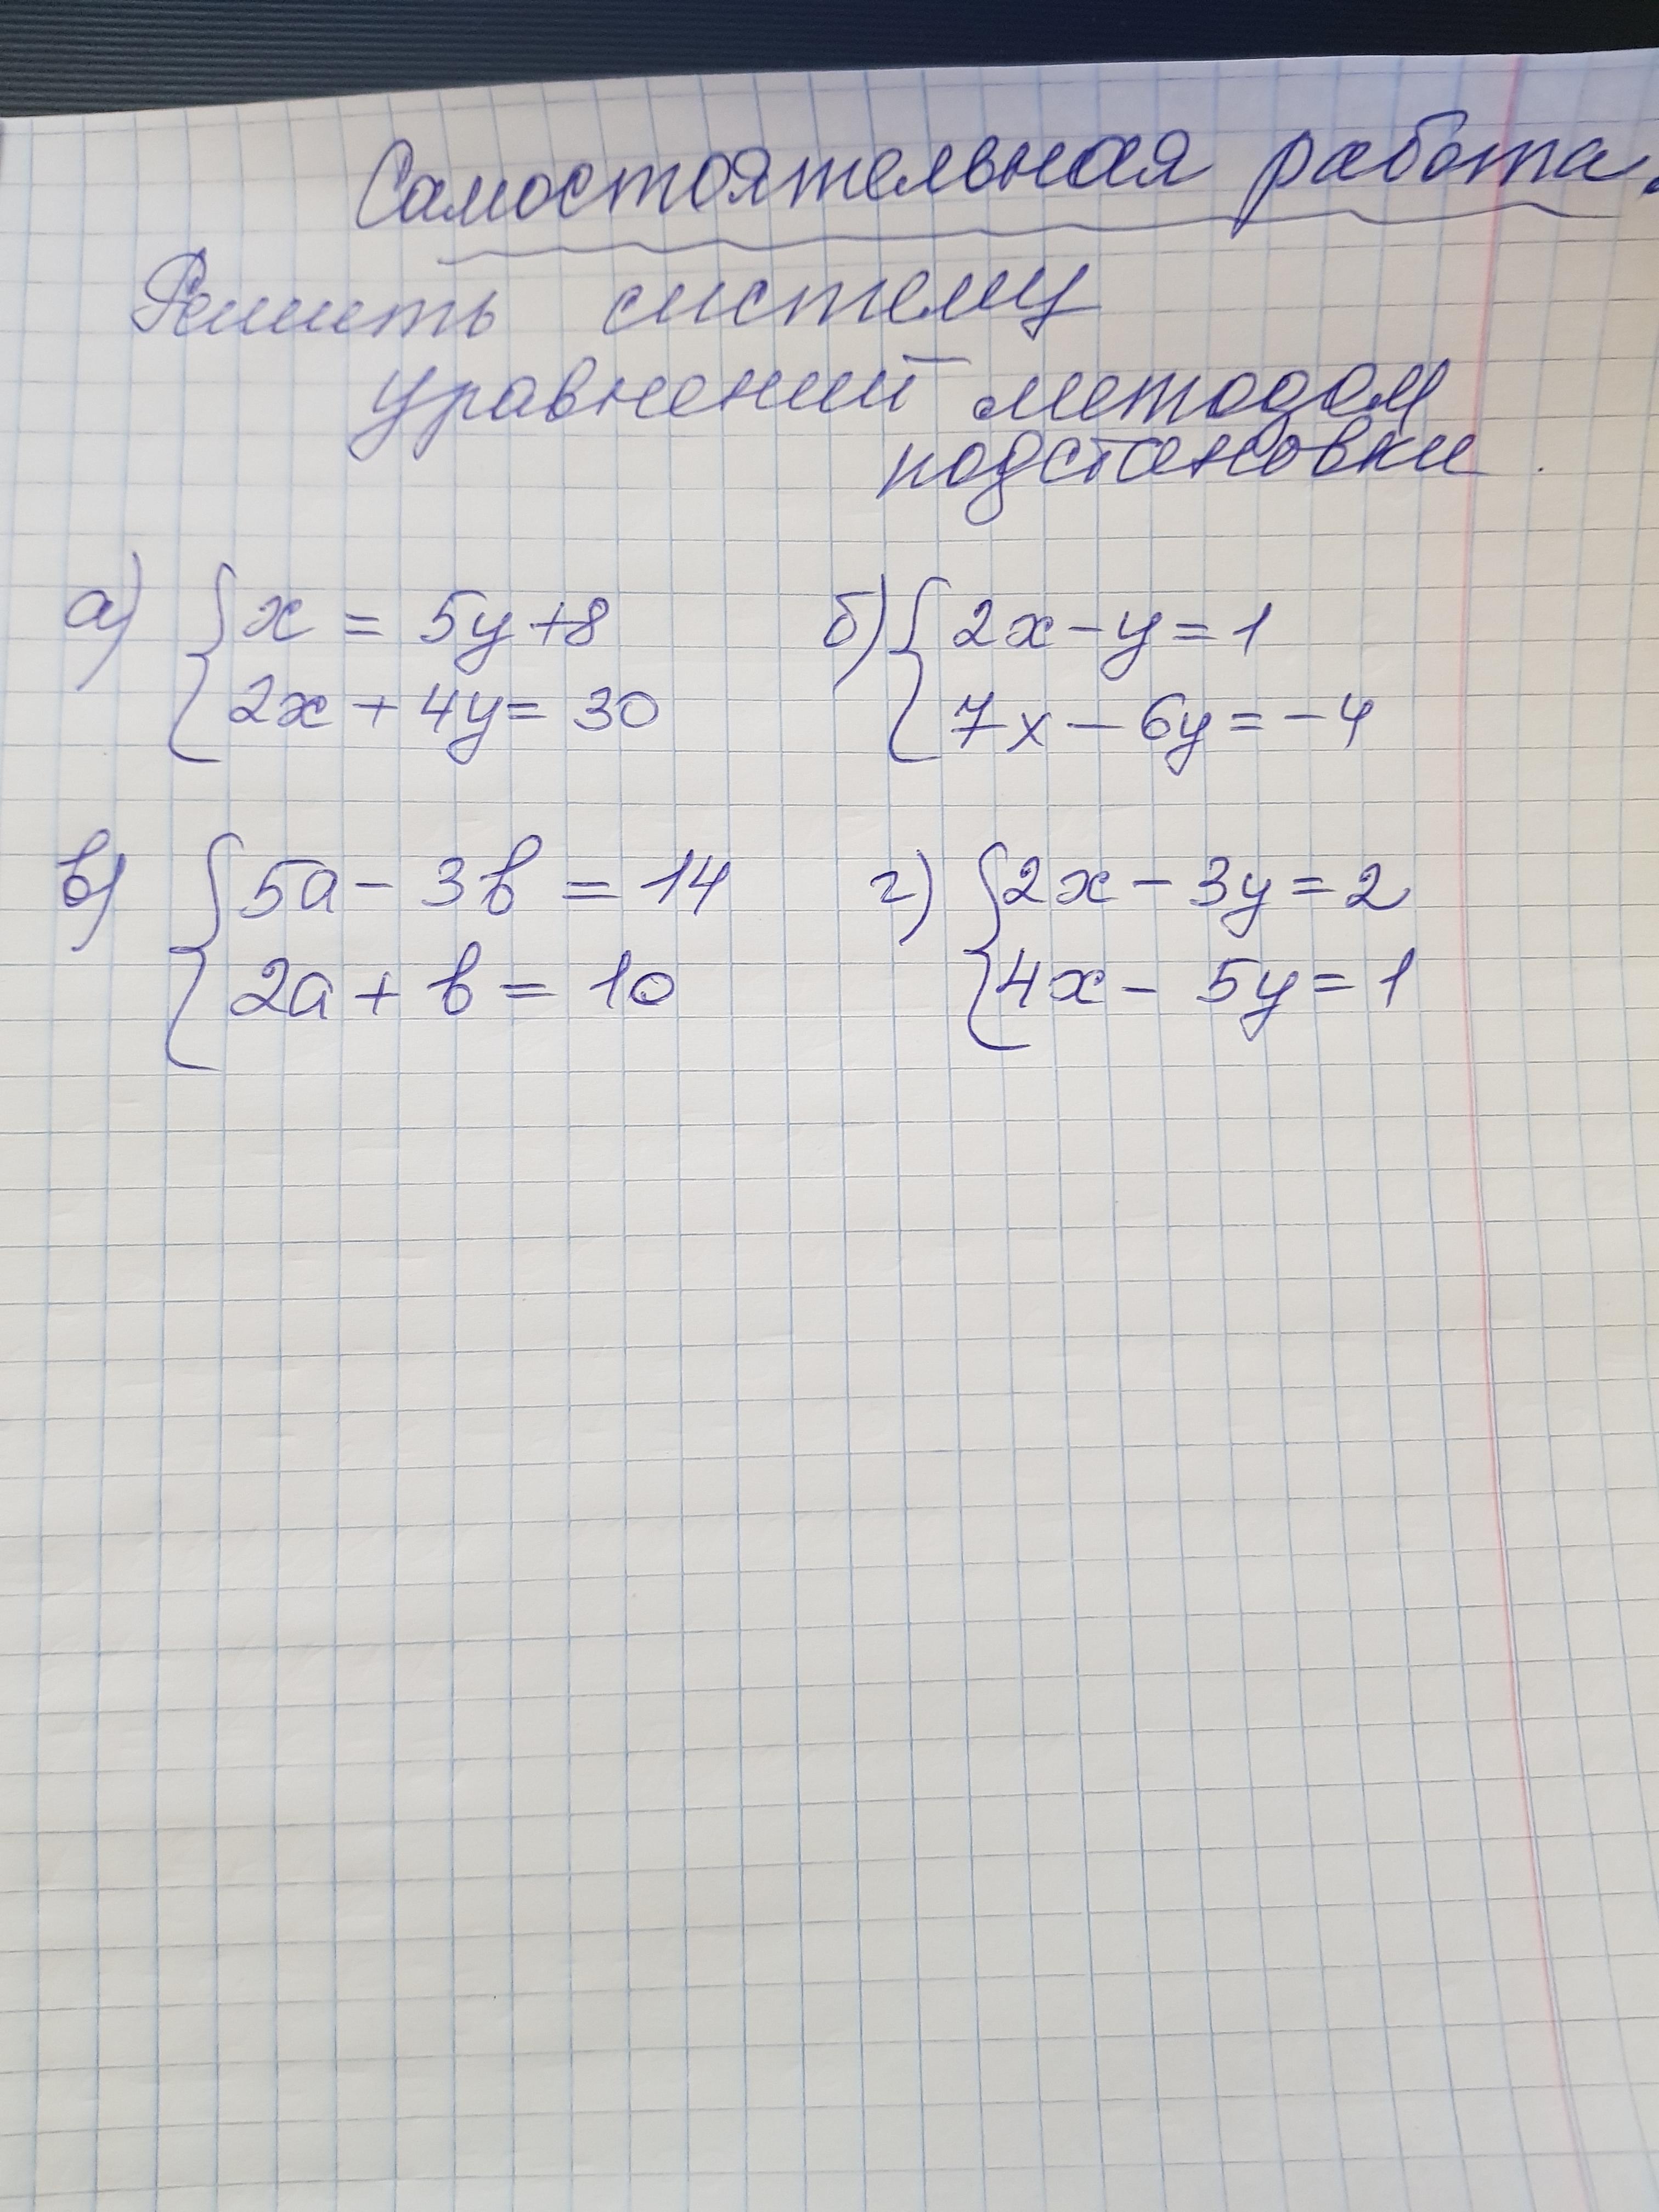 Самостоятельная работа.
Решить систему
уравнений методом
подстановки.
а) { x = 5y + 8 б) { 2x - y = 1
2x + 4y = 30 7x - 6y = -4
в) { 5a - 3b = 14 г) { 2x - 3y = 2
2a + b = 10 4x - 5y = 1